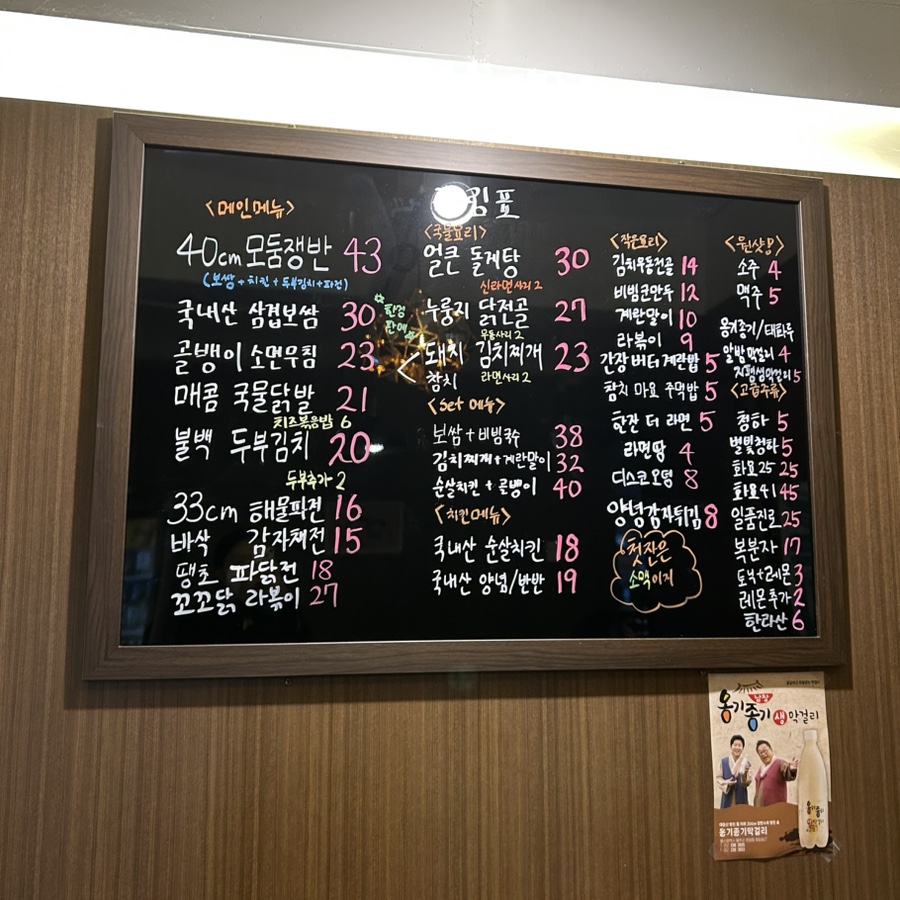 킹포
<메인메뉴>
40cm 모둠쟁반 43
(보쌈+치킨+두부김치+파전)
국내산 삼겹보쌈 30
한정
판매
골뱅이 소면무침 23
매콤 국물닭발 21
치즈볶음밥 6
불백 두부김치 20
두부추가 2
33cm 해물파전 16
바삭 감자채전 15
땡초 파닭전 18
꼬꼬닭 라볶이 27
<국물요리>
얼큰 돌게탕 30
신라면사리 2
누룽지 닭전골 27
우동사리 2
돼지 김치찌개 23
참치 라면사리 2
<set 메뉴>
보쌈+비빔국수 38
김치찌개+계란말이 32
순살치킨+골뱅이 40
<치킨메뉴>
국내산 순살치킨 18
국내산 양념/반반 19
<작은요리>
김치우동전골 14
비빔군만두 12
계란말이 10
라볶이 9
간장 버터 계란밥 5
참치 마요 주먹밥 5
한잔 더 라면 5
라면땅 4
디스코오뎅 8
양념감자튀김 8
첫잔은
소맥이지
<원샷!>
소주 4
맥주 5
옹기종기/태화루
알밤막걸리 4
지평생막걸리 5
<고급주류>
청하 5
별빛청하 5
화요25 25
화요41 45
일품진로 25
복분자 17
토닉+레몬 3
레몬추가 2
한라산 6
옹기종기 생 막걸리
옹기종기막걸리